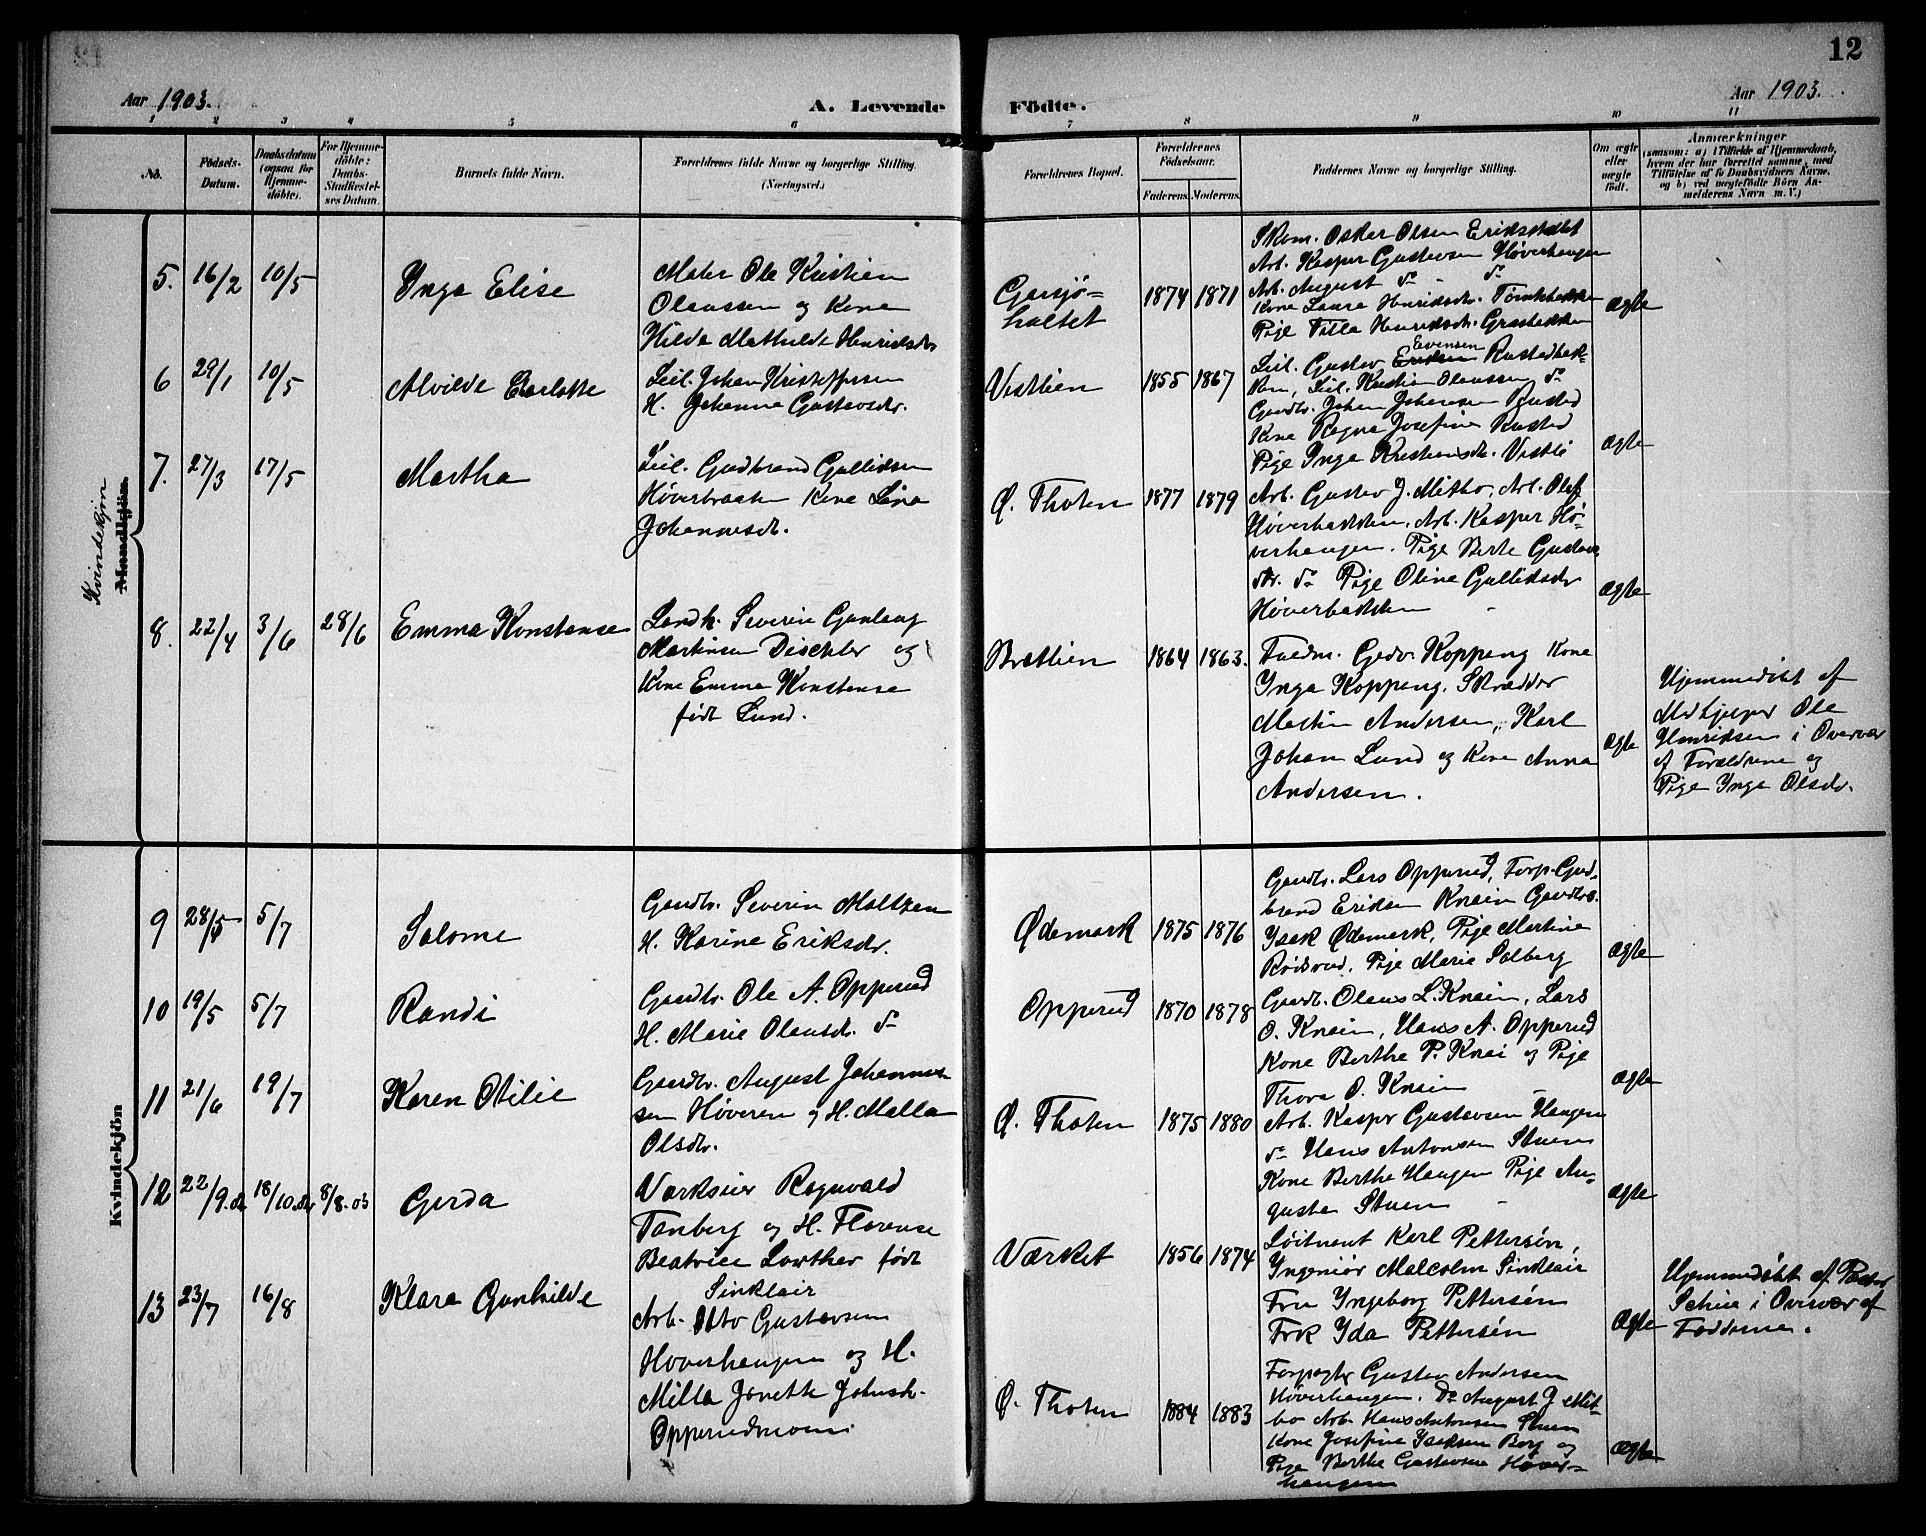 12
Aar 1903.
A. Levende Födte.
Aar 1903.
1 2 3 4 5 6 7 8 9 10 11
No.
Födsels-Datum.
Daabsdatum (ogsaa for Hjemme-döbte).
For Hjemme-döbte: Daabs-Stadfæstel-ses Datum.
Barnets fulde Navn.
Forældrenes fulde Navne og borgerlige Stilling.
(Næringsvei.)
Forældrenes Bopæl.
Forældrenes Födselsaar.
Faderens. Moderens.
Faddernes Navne og borgerlige Stilling.
Om ægte eller uægte födt.
Anmærkninger
(saasom: a) i Tilfælde af Hjemmedaab,
hvem der har forrettet samme, med
Tilföielse af to Daabsvidners Navne,
og b) ved uægtefödte Börn An-
melderens Navn m. V.)
Kvindekjøn
Mandkjön
5. 16/2 10/5
Inga Elise
Maler Ole Kristian
Olaussen og Kone
Hilda Mathilde Henriksdr
Gersjö-
haltet
1874 1871
Skom. Oskar Olsen Eriksstaltet
Arb. Kasper Gustavsen Høverhaugen
Arb. August do - do
Kone Laura Henriksdr.
Pige Tilla Henriksdr.
Ægte
6 29/1 10/5
Alvilde Charlotte
Leil. Johan Kristoffersen
H. Johanna Gustavsdr.
Vestlien
1855 1867
Leil. Gustav Eriksen Evensen Rustadbak-
ken, Leil. Kristian Olaussen do
Gaardbr. Johan Johansen Rustad
Kone Ragna Josefine Rustad
Pige Inga Kristiansdr. Vestli
Ægte
7. 27/3 17/5
Martha
Leil. Gudbrand Gulliksen
Høverbraaten Kone Lina
Johannesdr.
Ø. Thoten
1877 1879
Arb. Gustav J. Mitbo, Arb. Olaf
Høverbakken, Arb. Kasper Hø-
verhaugen. Pige Berte Gustavs
dr. do Pige Oline Gulliksdr
Høverbakken
Ægte
8. 22/4 3/6 28/6
Emma Konstanse
Landh. Severin Gunlaug
Martinsen Dischler og
Kone Emma Konstanse
født Lund.
Brattlien
1864 1863.
Fuldm. Gedv. Koppang Kone
Inga Koppang, Skrædder
Martin Andersen, Karl
Johan Lund og Kone Anna
Andersen.
Ægte
Hjemmedøbt af
Medhjelper Ole
Henriksen i Overvær
af Forældrene og
Pige Inga Olsdr.
Kvindekjön
9 28/5 5/7
Salome
Gaardbr. Severin Maltsen
H. Karine Eriksdr.
Ødemark
1875 1876
Gaardbr. Lars Opperud, Forp. Gud-
brand Eriksen Knain Gaardbr.
Isak Ødemark, Pige Martine
Rødsrud, Pige Marie Solberg
Ægte
10 19/5 5/7
Randi
Gaardbr. Ole A. Opperud
H. Marie Olausdr. do
Opperud
1870 1878
Gaardb. Olaus L. Knain, Lars
O. Knain, Hans A. Opperud
Kone Berthe P. Knai og Pige
Thora O. Knain
Ægte
11 21/6 19/7
Karen Otilie
Gaardbr. August Johannes-
sen Høveren og H. Malla
Olsdtr.
Ø. Thoten
1875 1880
Arb. Kasper Gustavsen Haugen
do Hans Antonsen Stuen
Kone Berthe Haugen Pige Au-
gusta Stuen
Ægte
12 22/9.02 18/10.02 8/8.03
Gerda
Værkseier Ragnvald
Tanberg og H. Florense
Beatrice Lowther født
Sinklair
Værket
1856 1874
Løitnant Karl Pettersøn,
Ingeniør Malcolm Sinklair
Fru Ingeborg Pettersøn
Frk Ida Pettersøn
Ægte
Hjemmedøbt af Pastor
Schie i Overvær af
Fadderne.
13 23/7 16/8
Klara Gunhilde
Arb. Otto Gustavsen
Høverhaugen og H.
Milla Janette Johnsdr.
Opperudmoen
Ø. Thoten
1884 1883
Forpagter Gustav Andersen
Høverhaugen. Do August J. Mit-
bo Arb. Hans Antonsen Stuen
Kone Josefine Isaksen Borg og
Pige Berthe Gustavsen Høver-
haugen
Ægte